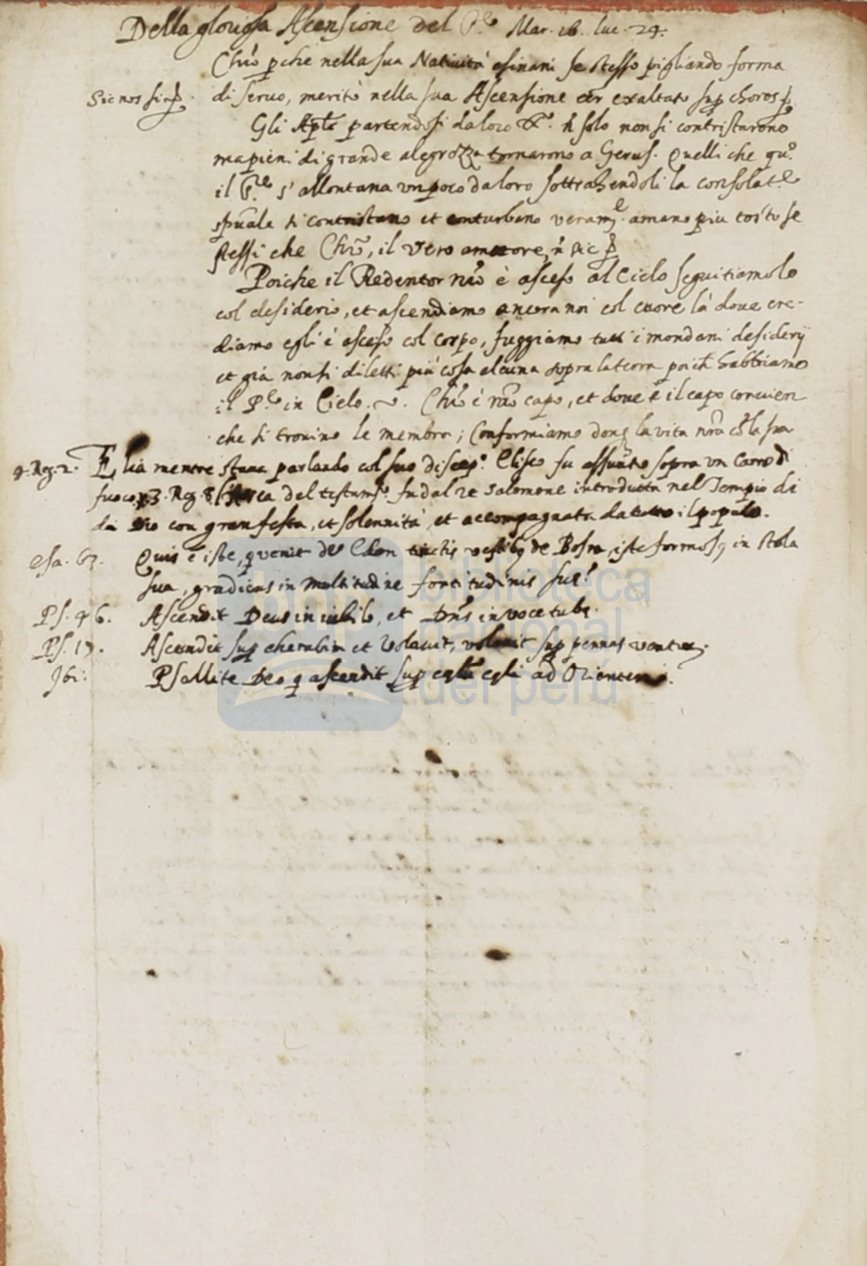 Della gloriosa Ascensione del S.re Mar. 16. luc. 24.
Chr̄o p̱che nella sua Natività esinanì se stesso pigliando forma
Sic nos si ap̃.
di servo, meritò nella sua Ascensione eēr exaltato sup̱ choros
Gli Ap̄li partendosi da loro X.o ñ solo non si contristarono
ma pieni di grande alegrezza tornarono a Gerus. Quelli che qu.o
il S.re s'allontana un poco da loro sottrahendoli la consolat.e
sp̄uale si contristano et conturbano veram.e amano piu tosto se
stessi che Chr̄o, il vero amatore ñ sic
Poiche il Redentor n̄ro è asceso al Cielo seguitiamolo
col desiderio, et ascendiamo ancora noi col cuore là dove cre-
diamo egli è asceso col corpo, fuggiamo tutti i mondani desiderij
et già non si diletti più cosa alcuna sopra la terra poich' habbiamo
il P.re in Cielo. Chr̄o è n̄ro capo, et dove è il capo convien
che si trovino le membra; Conformiamo donq̱ la vita n̄ra cō la sua
4. Reg. 2. Elia mentre stava parlando col suo discep.o Eliseo fu assunto sopra un Carro di
fuoco. 3. Reg. 8. l'Arca del testam.to fu dal re Salomone introdutta nel Tempio di
di Dio con gran festa, et solennità, et accompagnata da tutto il popolo.
Esa. 63. Quis è iste, q̱ venit de Edom tinctis vestib9 de Bosra, iste formos9 in stola
sua, gradiens in multitudine fortitudinis suę?
Ps. 46. Ascendit Deus in iubilo, et Dn̄s in voce tubę.
Ps. 17. Ascendit sup̱ cherubim et volavit, volavit sup̱ pennas ventor.
Ibi: Psallite Deo q̱ ascendit sup̱ cęlū cęli ad Orientem.
biblioteca
nacional
del perú